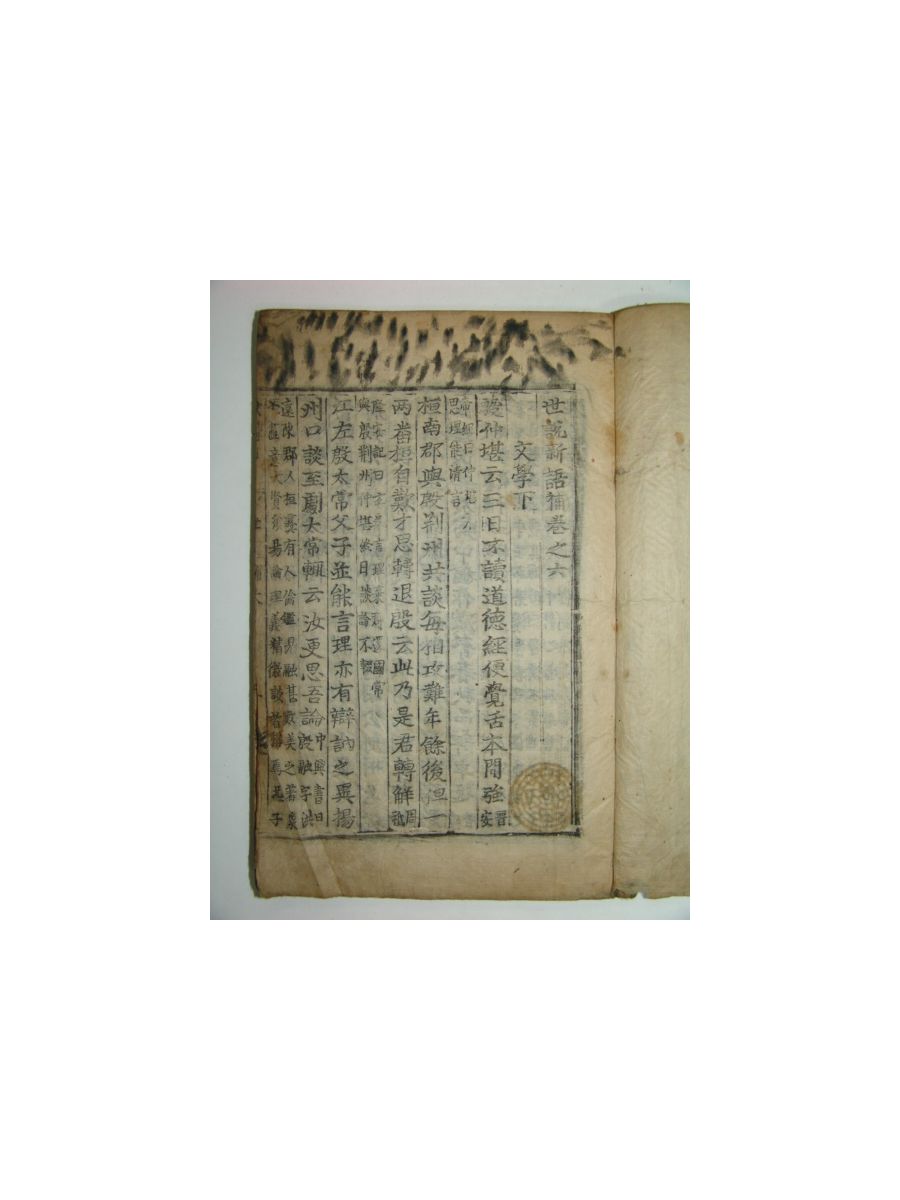 世說新語補卷之六
文學下
殷仲堪云三日不讀道德經便覺舌本間強晉安
帝紀曰仲堪有
思理能清言
桓南郡與殷荊州共談每相攻難年餘後但一
兩番桓自歎才思轉退殷云此乃是君轉解周祗
隆安記曰玄善言理棄郡還國常
與殷荊州仲堪終日談論不輟
江左殷太常父子並能言理亦有辯訥之異揚
州口談至劇太常輒云汝更思吾論中興書曰殷融字洪
遠陳郡人桓彝有人倫鑑見融甚歎美之著象